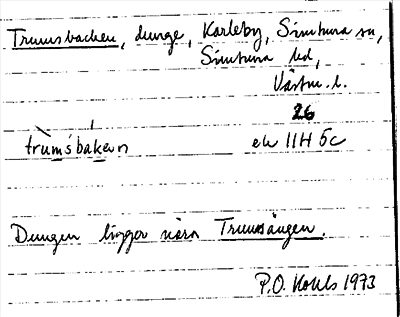 Trumsbacken, dunge, Karleby, Simtuna sn,
Simtuna hd,
Västm. l.
26
trùmsbákeṇ ek 11H 5c
Dungen ligger nära Trumsängen.
P.O. Kohls 1973